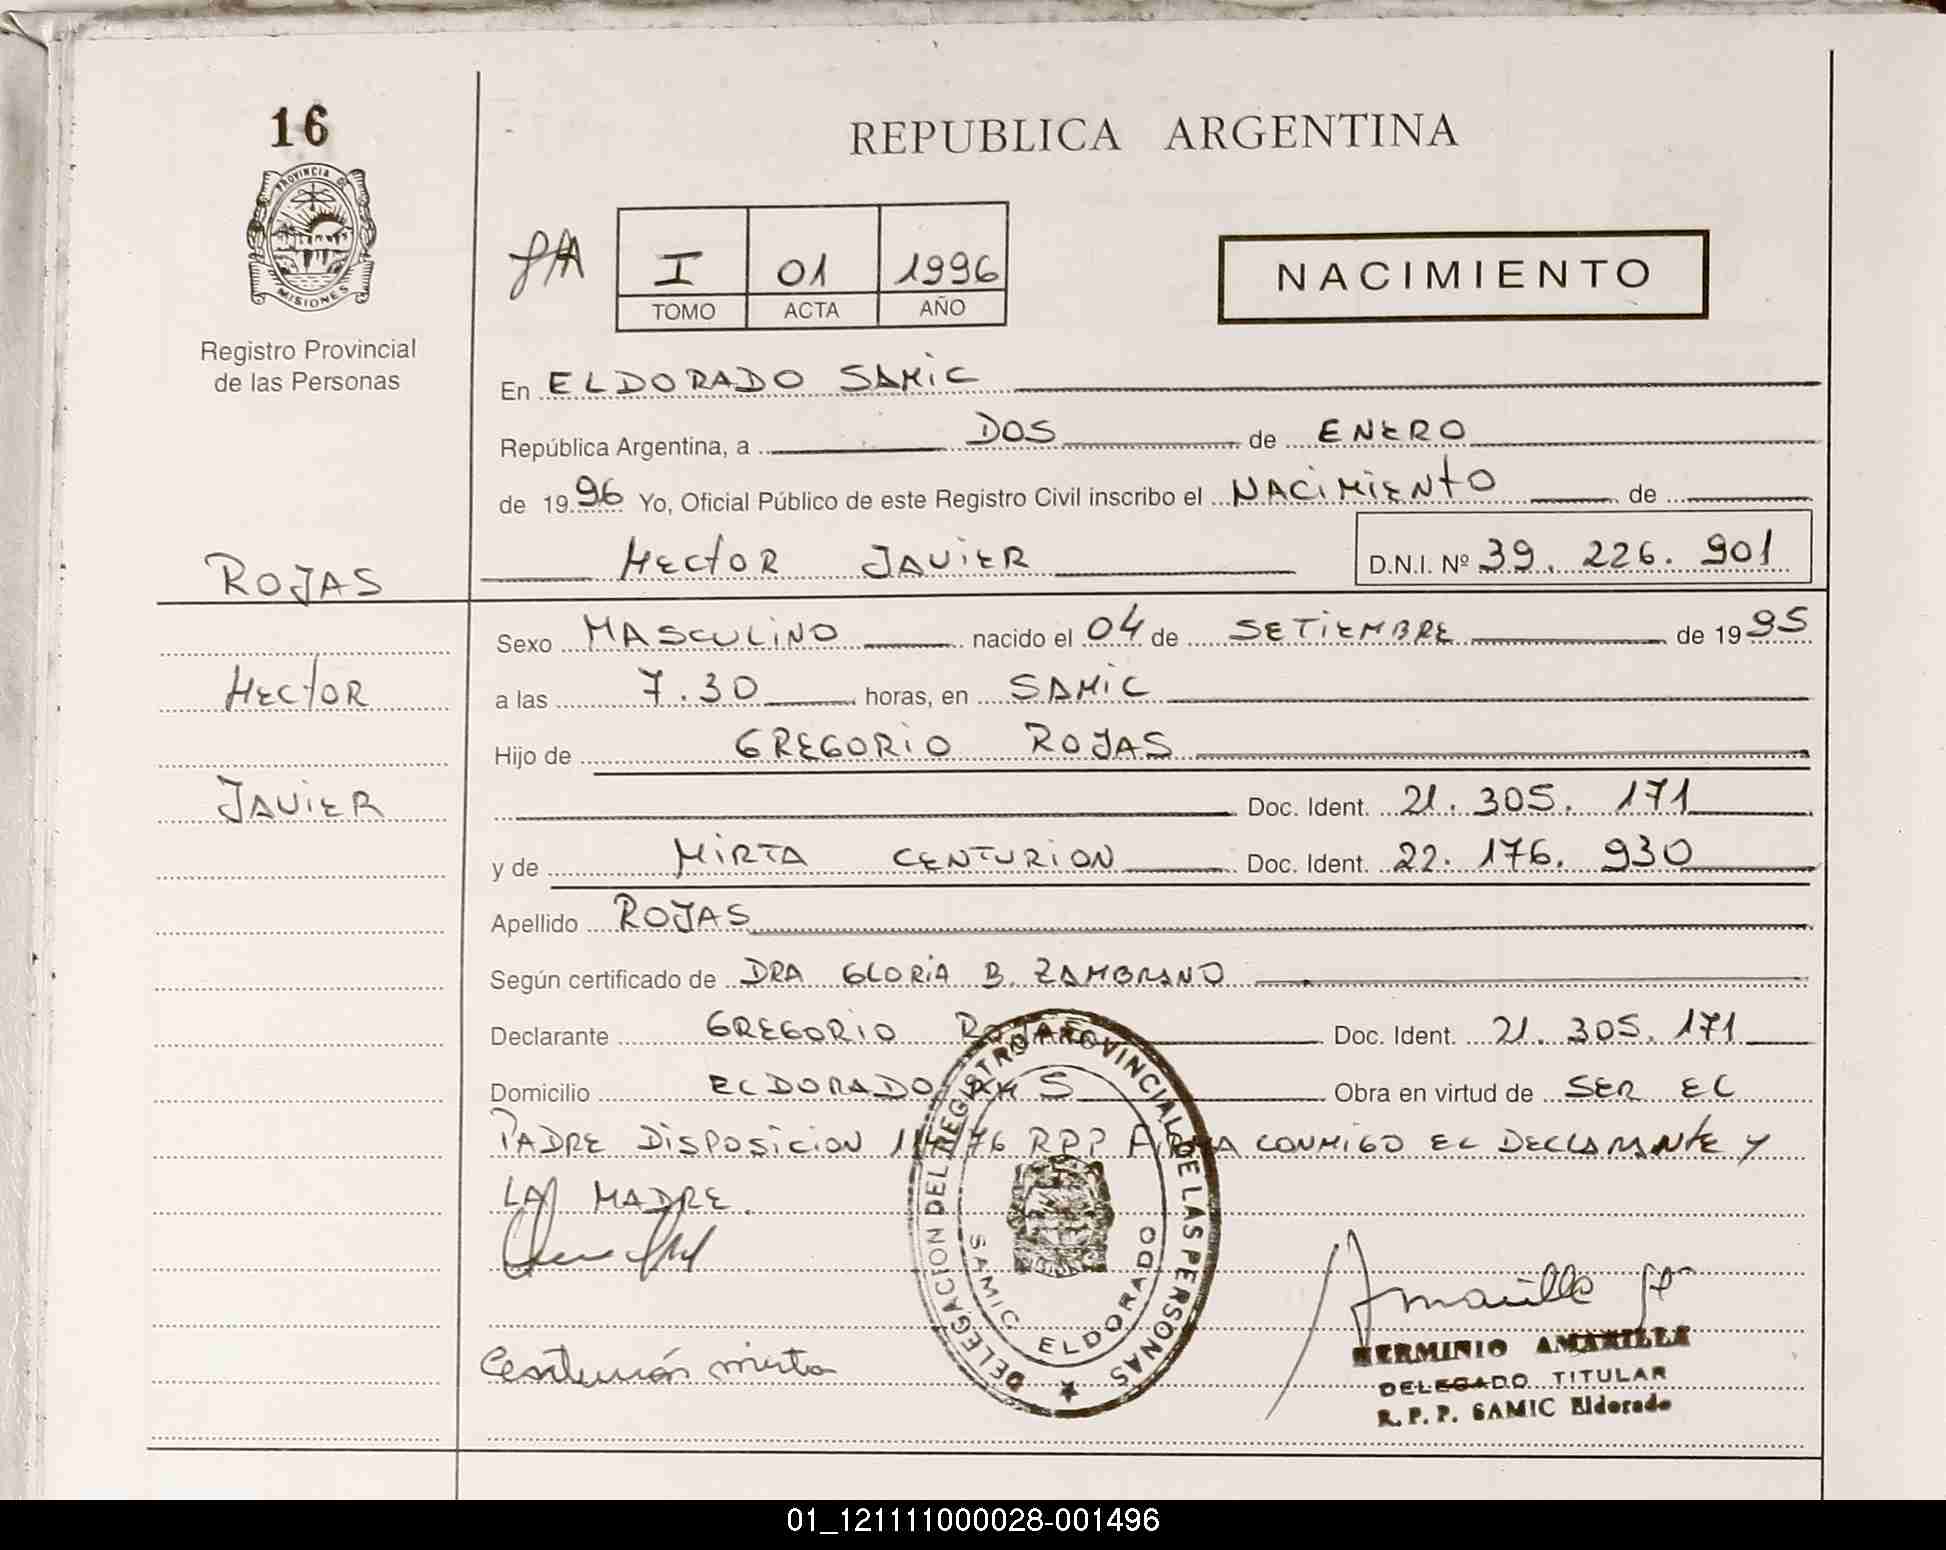 16
PROVINCIA DE
MISIONES
Registro Provincial
de las Personas
REPUBLICA ARGENTINA
I 01 1996
TOMO ACTA AÑO
NACIMIENTO
En ELDORADO SAMIC
República Argentina, a DOS de ENERO
de 1996 Yo, Oficial Público de este Registro Civil inscribo el NACIMIENTO de
HECTOR JAVIER D.N.I. Nº 39.226.901
ROJAS
HECTOR
JAVIER
Sexo MASCULINO nacido el 04 de SETIEMBRE de 1995
a las 7.30 horas, en SAMIC
Hijo de GREGORIO ROJAS
Doc. Ident. 21.305.171
y de MIRTA CENTURION Doc. Ident. 22.176.930
Apellido ROJAS
Según certificado de DRA GLORIA B. ZAMBRANO
Declarante GREGORIO ROJAS Doc. Ident. 21.305.171
Domicilio ELDORADO KM 5 Obra en virtud de SER EL
PADRE DISPOSICION 76 RPP FIRMA CONMIGO EL DECLARANTE Y
LA MADRE.
DELEGACION DEL REGISTRO PROVINCIAL DE LAS PERSONAS
SAMIC ELDORADO
Centurión mirta
Amarilla
HERMINIO AMARILLA
DELEGADO TITULAR
R.P.P. SAMIC Eldorado
01_121111000028-001496